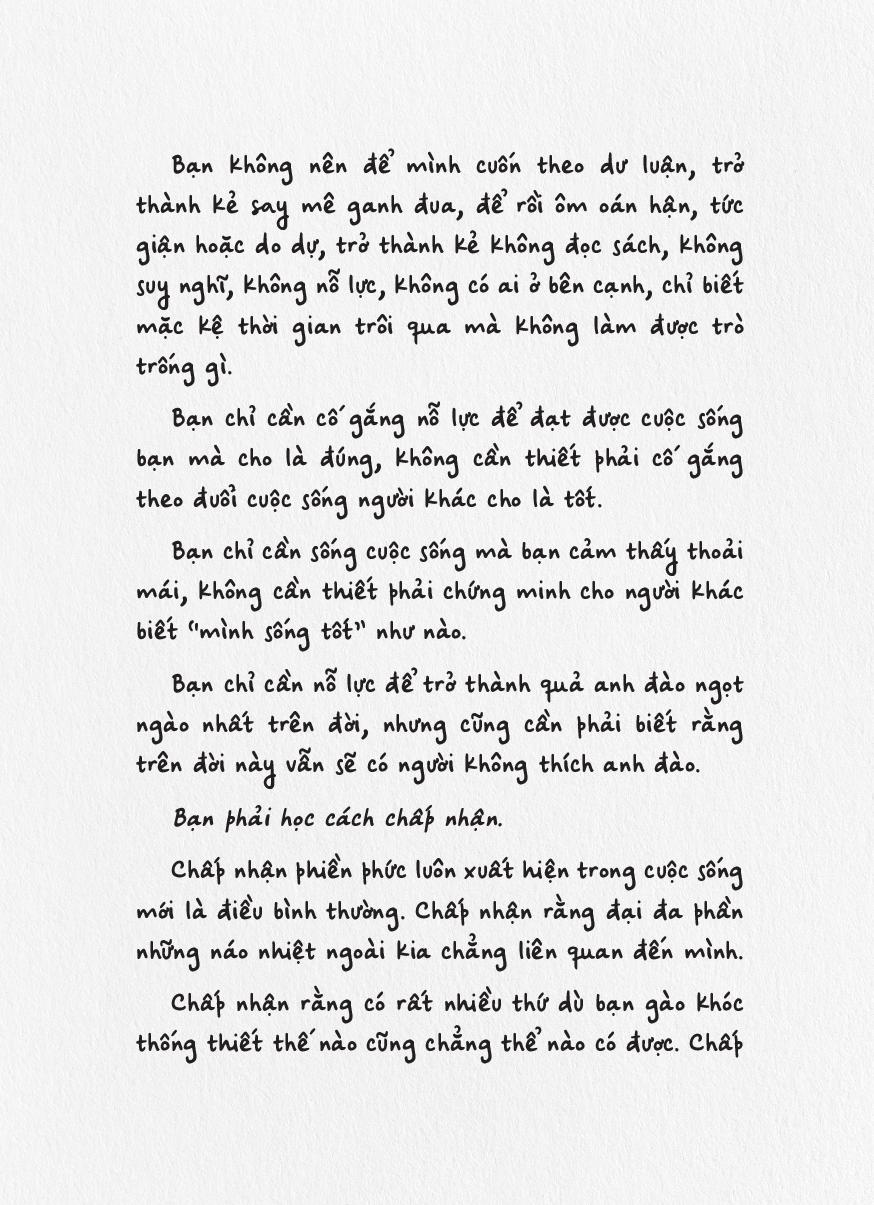 Bạn không nên để mình cuốn theo dư luận, trở
thành kẻ say mê ganh đua, để rồi ôm oán hận, tức
giận hoặc do dự, trở thành kẻ không đọc sách, không
suy nghĩ, không nỗ lực, không có ai ở bên cạnh, chỉ biết
mặc kệ thời gian trôi qua mà không làm được trò
trống gì.
Bạn chỉ cần cố gắng nỗ lực để đạt được cuộc sống
bạn mà cho là đúng, không cần thiết phải cố gắng
theo đuổi cuộc sống người khác cho là tốt.
Bạn chỉ cần sống cuộc sống mà bạn cảm thấy thoải
mái, không cần thiết phải chứng minh cho người khác
biết “mình sống tốt” như nào.
Bạn chỉ cần nỗ lực để trở thành quả anh đào ngọt
ngào nhất trên đời, nhưng cũng cần phải biết rằng
trên đời này vẫn sẽ có người không thích anh đào.
Bạn phải học cách chấp nhận.
Chấp nhận phiền phức luôn xuất hiện trong cuộc sống
mới là điều bình thường. Chấp nhận rằng đại đa phần
những náo nhiệt ngoài kia chẳng liên quan đến mình.
Chấp nhận rằng có rất nhiều thứ dù bạn gào khóc
thống thiết thế nào cũng chẳng thể nào có được. Chấp